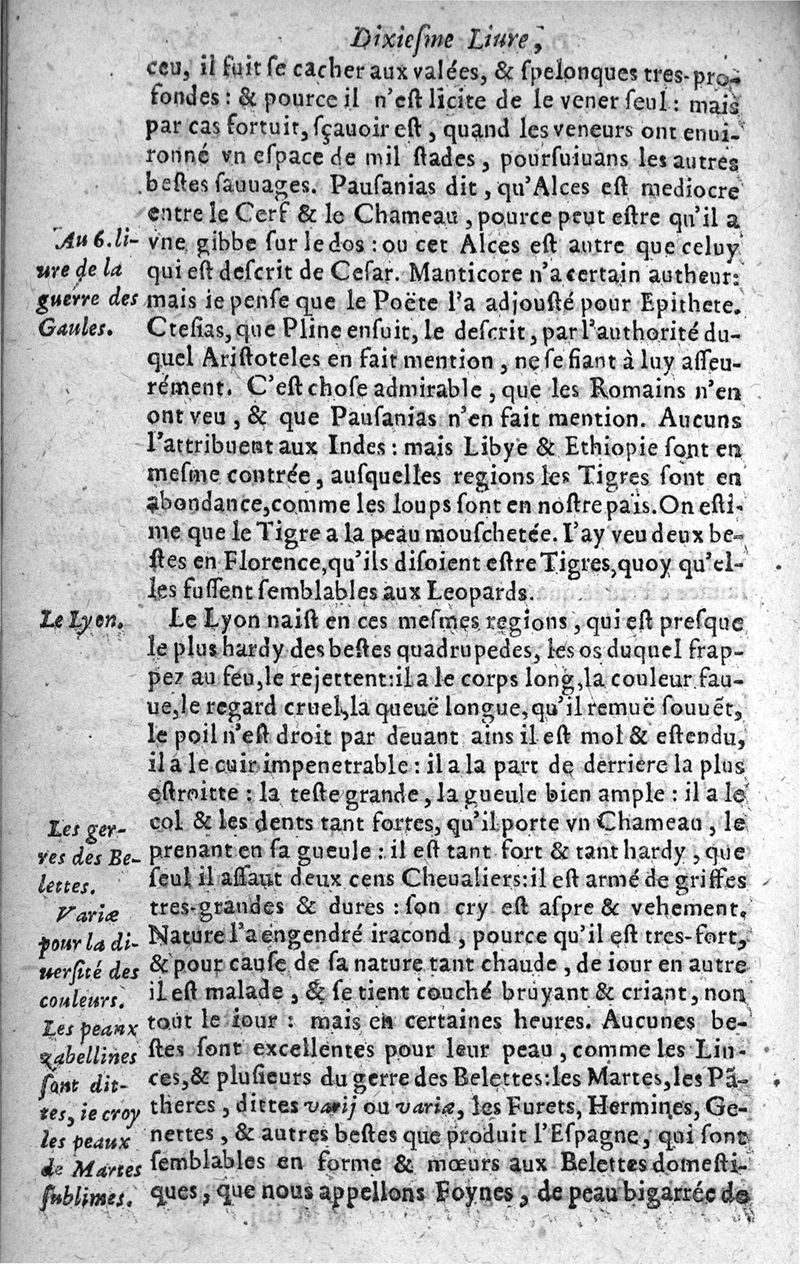 Dixieſme Liure,
ceu, il fuit ſe cacher aux valées, & ſpelonques tres-pro-
fondes : & pource il n'eſt licite de le vener ſeul : mais
par cas fortuit, ſçauoir eſt , quand les veneurs ont enui-
ronné vn eſpace de mil ſtades , pourſuiuans les autres
beſtes ſauuages. Pauſanias dit , qu'Alces eſt mediocre
entre le Cerf & le Chameau , pource peut eſtre qu'il a
vne gibbe ſur le dos : ou cet Alces eſt autre que celuy
qui eſt deſcrit de Ceſar. Manticore n'a certain autheur:
mais ie penſe que le Poëte l'a adjouſté pour Epithete.
Cteſias, que Pline enſuit, le deſcrit , par l'authorité du-
quel Ariſtoteles en fait mention , ne ſe fiant à luy aſſeu-
rément. C'eſt choſe admirable , que les Romains n'en
ont veu , & que Pauſanias n'en fait mention. Aucuns
l'attribuent aux Indes : mais Libye & Ethiopie ſont en
meſme contrée , auſquelles regions les Tigres ſont en
abondance, comme les loups ſont en noſtre païs. On eſti-
me que le Tigre a la peau mouſchetée. I'ay veu deux be-
ſtes en Florence, qu'ils diſoient eſtre Tigres, quoy qu'el-
les fuſſent ſemblables aux Leopards.
Au 6. li-
ure de la
guerre des
Gaules.
Le Lyon naiſt en ces meſmes regions , qui eſt preſque
le plus hardy des beſtes quadrupedes, les os duquel frap-
pez au feu, le rejettent: il a le corps long, la couleur fau-
ue, le regard cruel, la queuë longue, qu'il remuë ſouuẽt,
le poil n'eſt droit par deuant ains il eſt mol & eſtendu,
il a le cuir impenetrable : il a la part de derriere la plus
eſtroitte : la teſte grande , la gueule bien ample : il a le
col & les dents tant fortes, qu'il porte vn Chameau , le
prenant en ſa gueule : il eſt tant fort & tant hardy , que
ſeul il aſſaut deux cens Cheualiers: il eſt armé de griffes
tres-grandes & dures : ſon cry eſt aſpre & vehement.
Nature l'a engendré iracond , pource qu'il eſt tres-fort,
& pour cauſe de ſa nature tant chaude , de iour en autre
il eſt malade , & ſe tient couché bruyant & criant, non
tout le iour : mais en certaines heures. Aucunes be-
ſtes ſont excellentes pour leur peau , comme les Lin-
ces, & pluſieurs du gerre des Belettes: les Martes, les Pã-
theres , dittes varij ou variæ, les Furets, Hermines, Ge-
nettes , & autres beſtes que produit l'Eſpagne , qui ſont
ſemblables en forme & mœurs aux Belettes domeſti-
ques , que nous appellons Foynes , de peau bigarrée de
Le Lyon.
Les ger-
res des Be-
lettes.
Variæ
pour la di-
uerſité des
couleurs.
Les peaux
zabellines
ſont dit-
tes, ie croy
les peaux
de Martes
ſublimes.